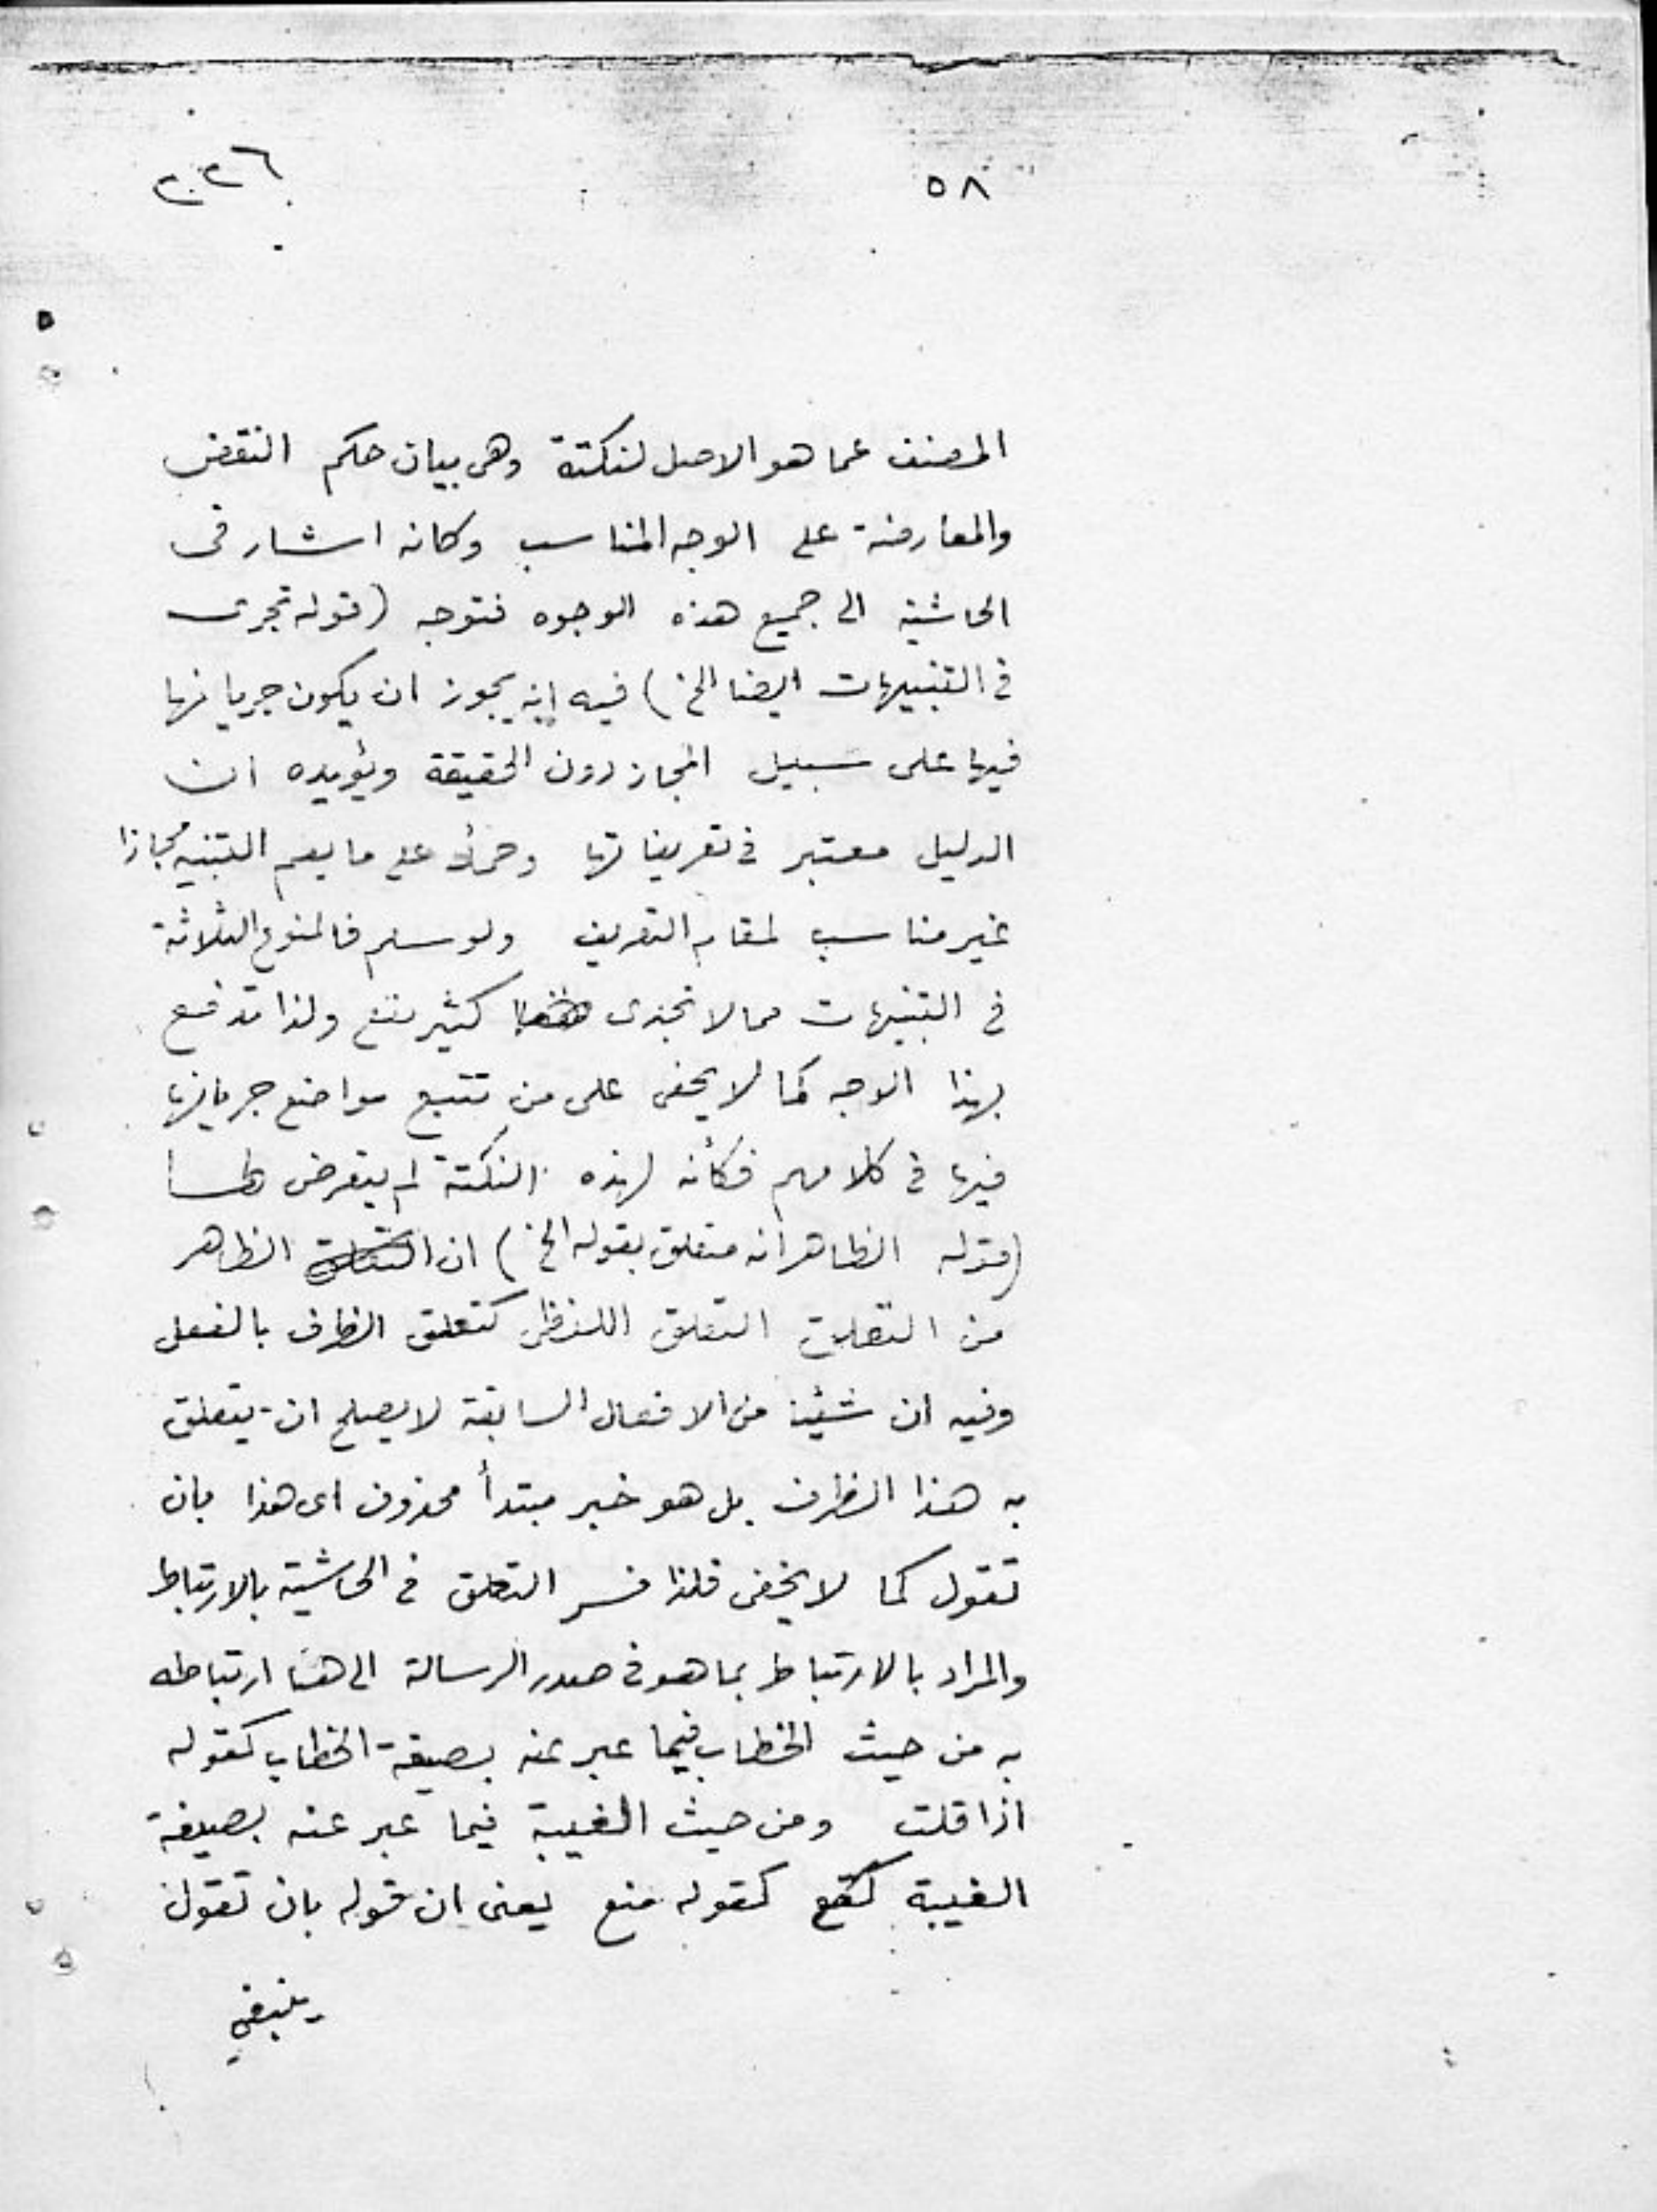 ٥٨ ٢٠٢٦
المصنف عما هو الاصل لنكتة وهى بيان حكم النقض
والمعارضة على الوجه المناسب وكانه اشار فى
الحاشية الى جميع هذه الوجوه فتوجه (قوله تجرى
فى التنبيهات ايضا الخ) فيه انه يجوز ان يكون جريانها
فيها على سبيل المجاز دون الحقيقة ويؤيده ان
الدليل معتبر فى تعريفاتها وحمله على ما يعم التنبيه مجازا
غير مناسب لمقام التعريف ولو سلم فالمنوع الثلاثة
فى التنبيهات مما لا تجدى كثير نفع ولذا تدفع
بهذا الوجه كما لا يخفى على من تتبع مواضع جريانها
فيها فى كلامهم فكأنه لهذه النكتة لم يتعرض لها
(قوله الظاهر انه متعلق بقوله الخ) ان الظاهر
من التعلق التعلق اللفظى كتعلق الظرف بالفعل
وفيه ان شيئا من الافعال السابقة لا يصلح ان يتعلق
به هذا الظرف بل هو خبر مبتدأ محذوف اى هذا بان
تقول كما لا يخفى فلذا فسر التعلق فى الحاشية بالارتباط
والمراد بالارتباط بما هو فى صدر الرسالة الى هنا ارتباطه
به من حيث الخطاب فيما عبر عنه بصيغة الخطاب كقوله
اذا قلت ومن حيث الغيبة فيما عبر عنه بصيغة
الغيبة كقوله منع يعنى ان قوله بان تقول
ينبغي